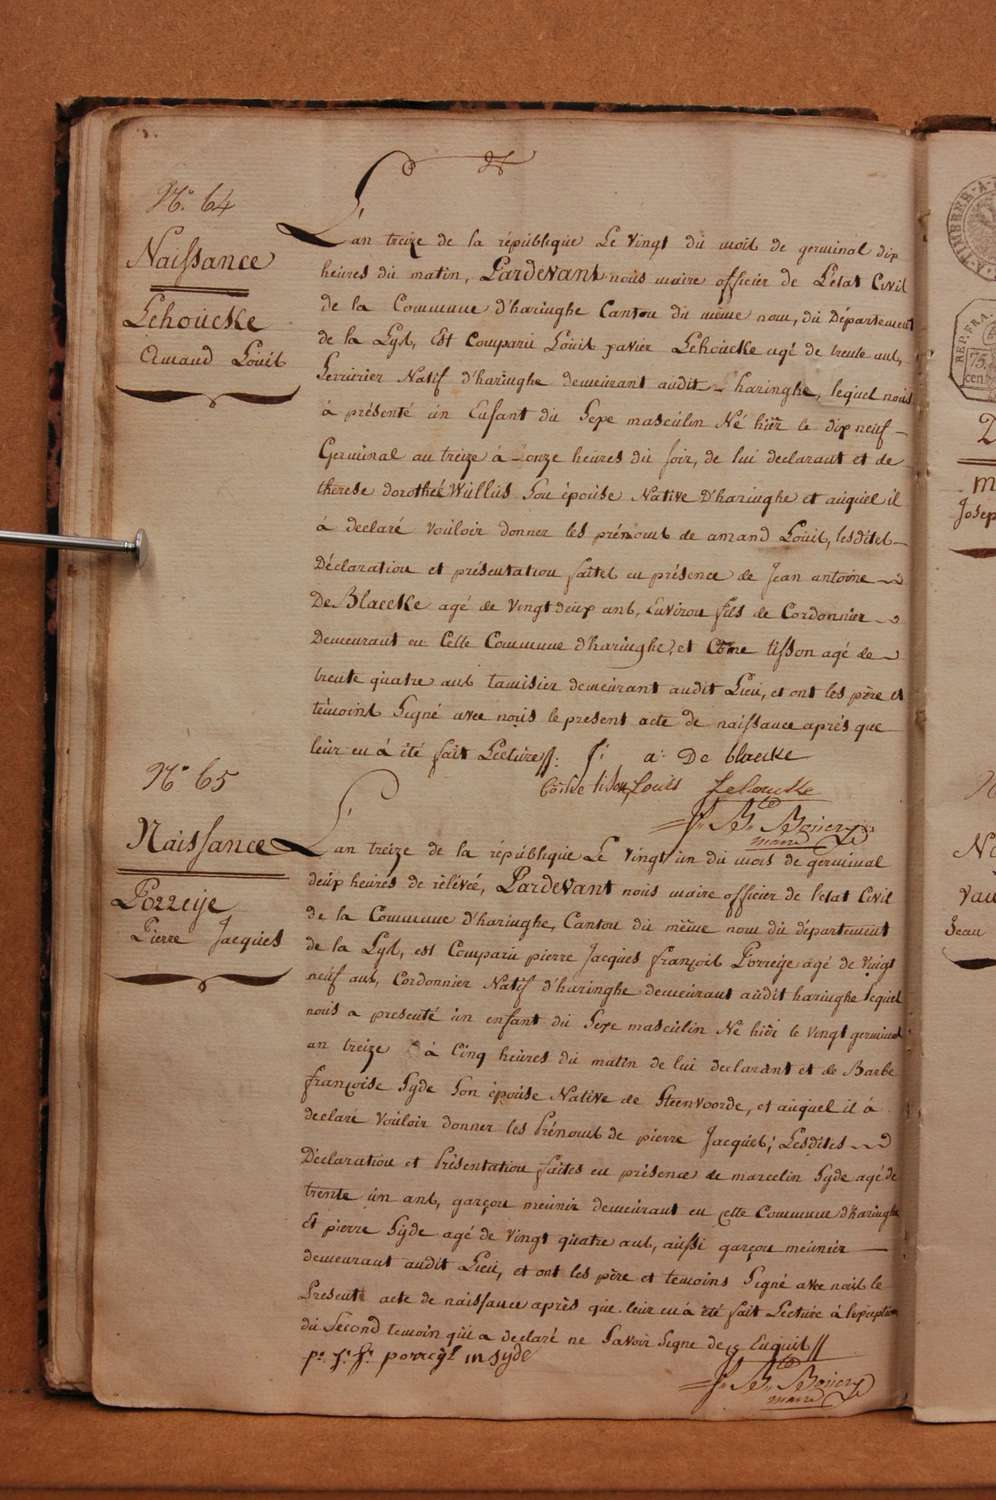 N.° 64
Naissance
Lehoucke
Amand Louis
L'an treize de la république Le vingt du mois de germinal dix
heures du matin, Pardevant nous maire officier de L'état Civil
de la Commune d'haringhe Canton du même nom, du Département
de la Lys, Est Comparu Louis xavier Lehoucke agé de trente ans,
Serrurier Natif d'haringhe demeurant audit haringhe, lequel nous
à présenté un Enfant du Sexe masculin Né hier le dix neuf
Germinal an treize à onze heures du soir, de lui declarant et de
therese dorotheé Wullus son épouse Native d'haringhe et auquel il
à declaré vouloir donner les prénoms de amand Louis, lesdites
Déclaration et présentation faites en présence de Jean antoine
De Blaecke agé de vingt deux ans, Environ fils de Cordonnier
Demeurant en Cette Commune d'haringhe, et Côme tisson agé de
trente quatre ans tamisier demeurant audit Lieu, et ont les père et
témoins Signé avec nous le present acte de naissance après que
leur en à été fait Lecture j: a: De blaecke
Louis Lehoucke
maire
N.° 65
Naissance
Porreije
Pierre Jacques
L'an treize de la république Le vingt un du mois de germinal
deux heures de relévée, Pardevant nous maire officier de l'etat Civil
de la Commune d'haringhe, Canton du même nom du département
de la Lys, est Comparu pierre Jacques françois Porreije agé de vingt
neuf ans, Cordonnier Natif d'haringhe demeurant audit haringhe lequel
nous a presenté un enfant du Sexe masculin Né hier le vingt germinal
an treize à Cinq heures du matin de lui declarant et de Barbe
françoise Syde son épouse Native de Steenvoorde, et auquel il à
declaré vouloir donner les Prénoms de pierre Jacques; Lesdites
Déclaration et Présentation faites en présence de marcelin Syde agé de
trente un ans, garçon meunir demeurant en cette Commune d'haringhe
Et pierre Syde agé de vingt quatre ans, aussi garçon meunier
demeurant audit Lieu, et ont les père et temoins Signé avec nous le
Present acte de naissance après que leur en à été fait Lecture à l'exeption
du Second temoin qui a declaré ne Savoir Signe de ce Enquis
p.e j.s f.s porreye m syde
maire